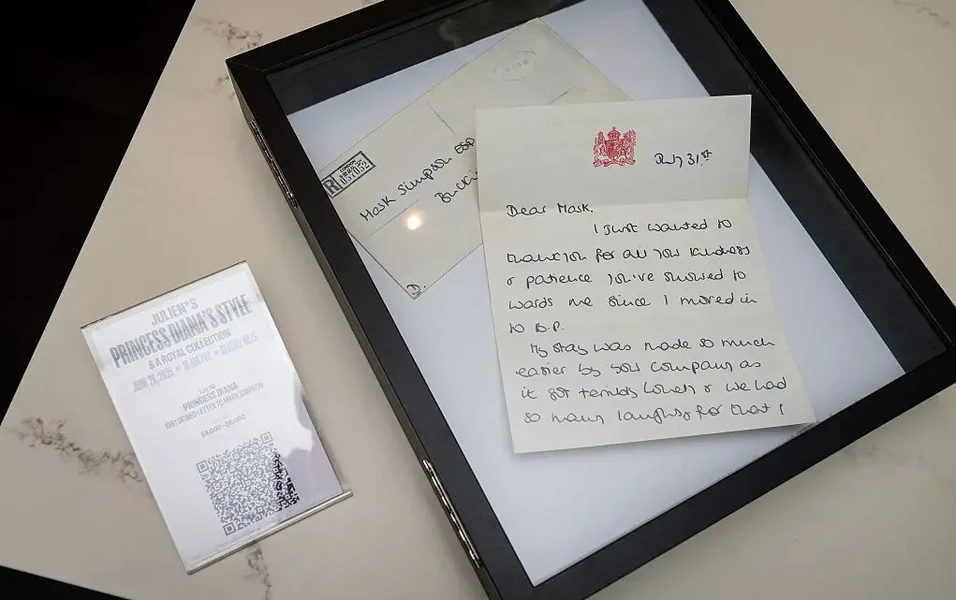 JULIEN'S
PRINCESS DIANA'S STYLE
& A ROYAL COLLECTION
PRINCESS DIANA
1981 SIGNED LETTER TO MARK SIMPSON
R
LONDON
Mark Simpson Esq
Bucki
D.
July 31st
Dear Mark,
I just wanted to
thank you for all your kindness
& patience you've showed to
wards me since I moved in
to B.P.
My stay was made so much
easier by your company as
it got terribly lonely & we had
so many laughs, for that I